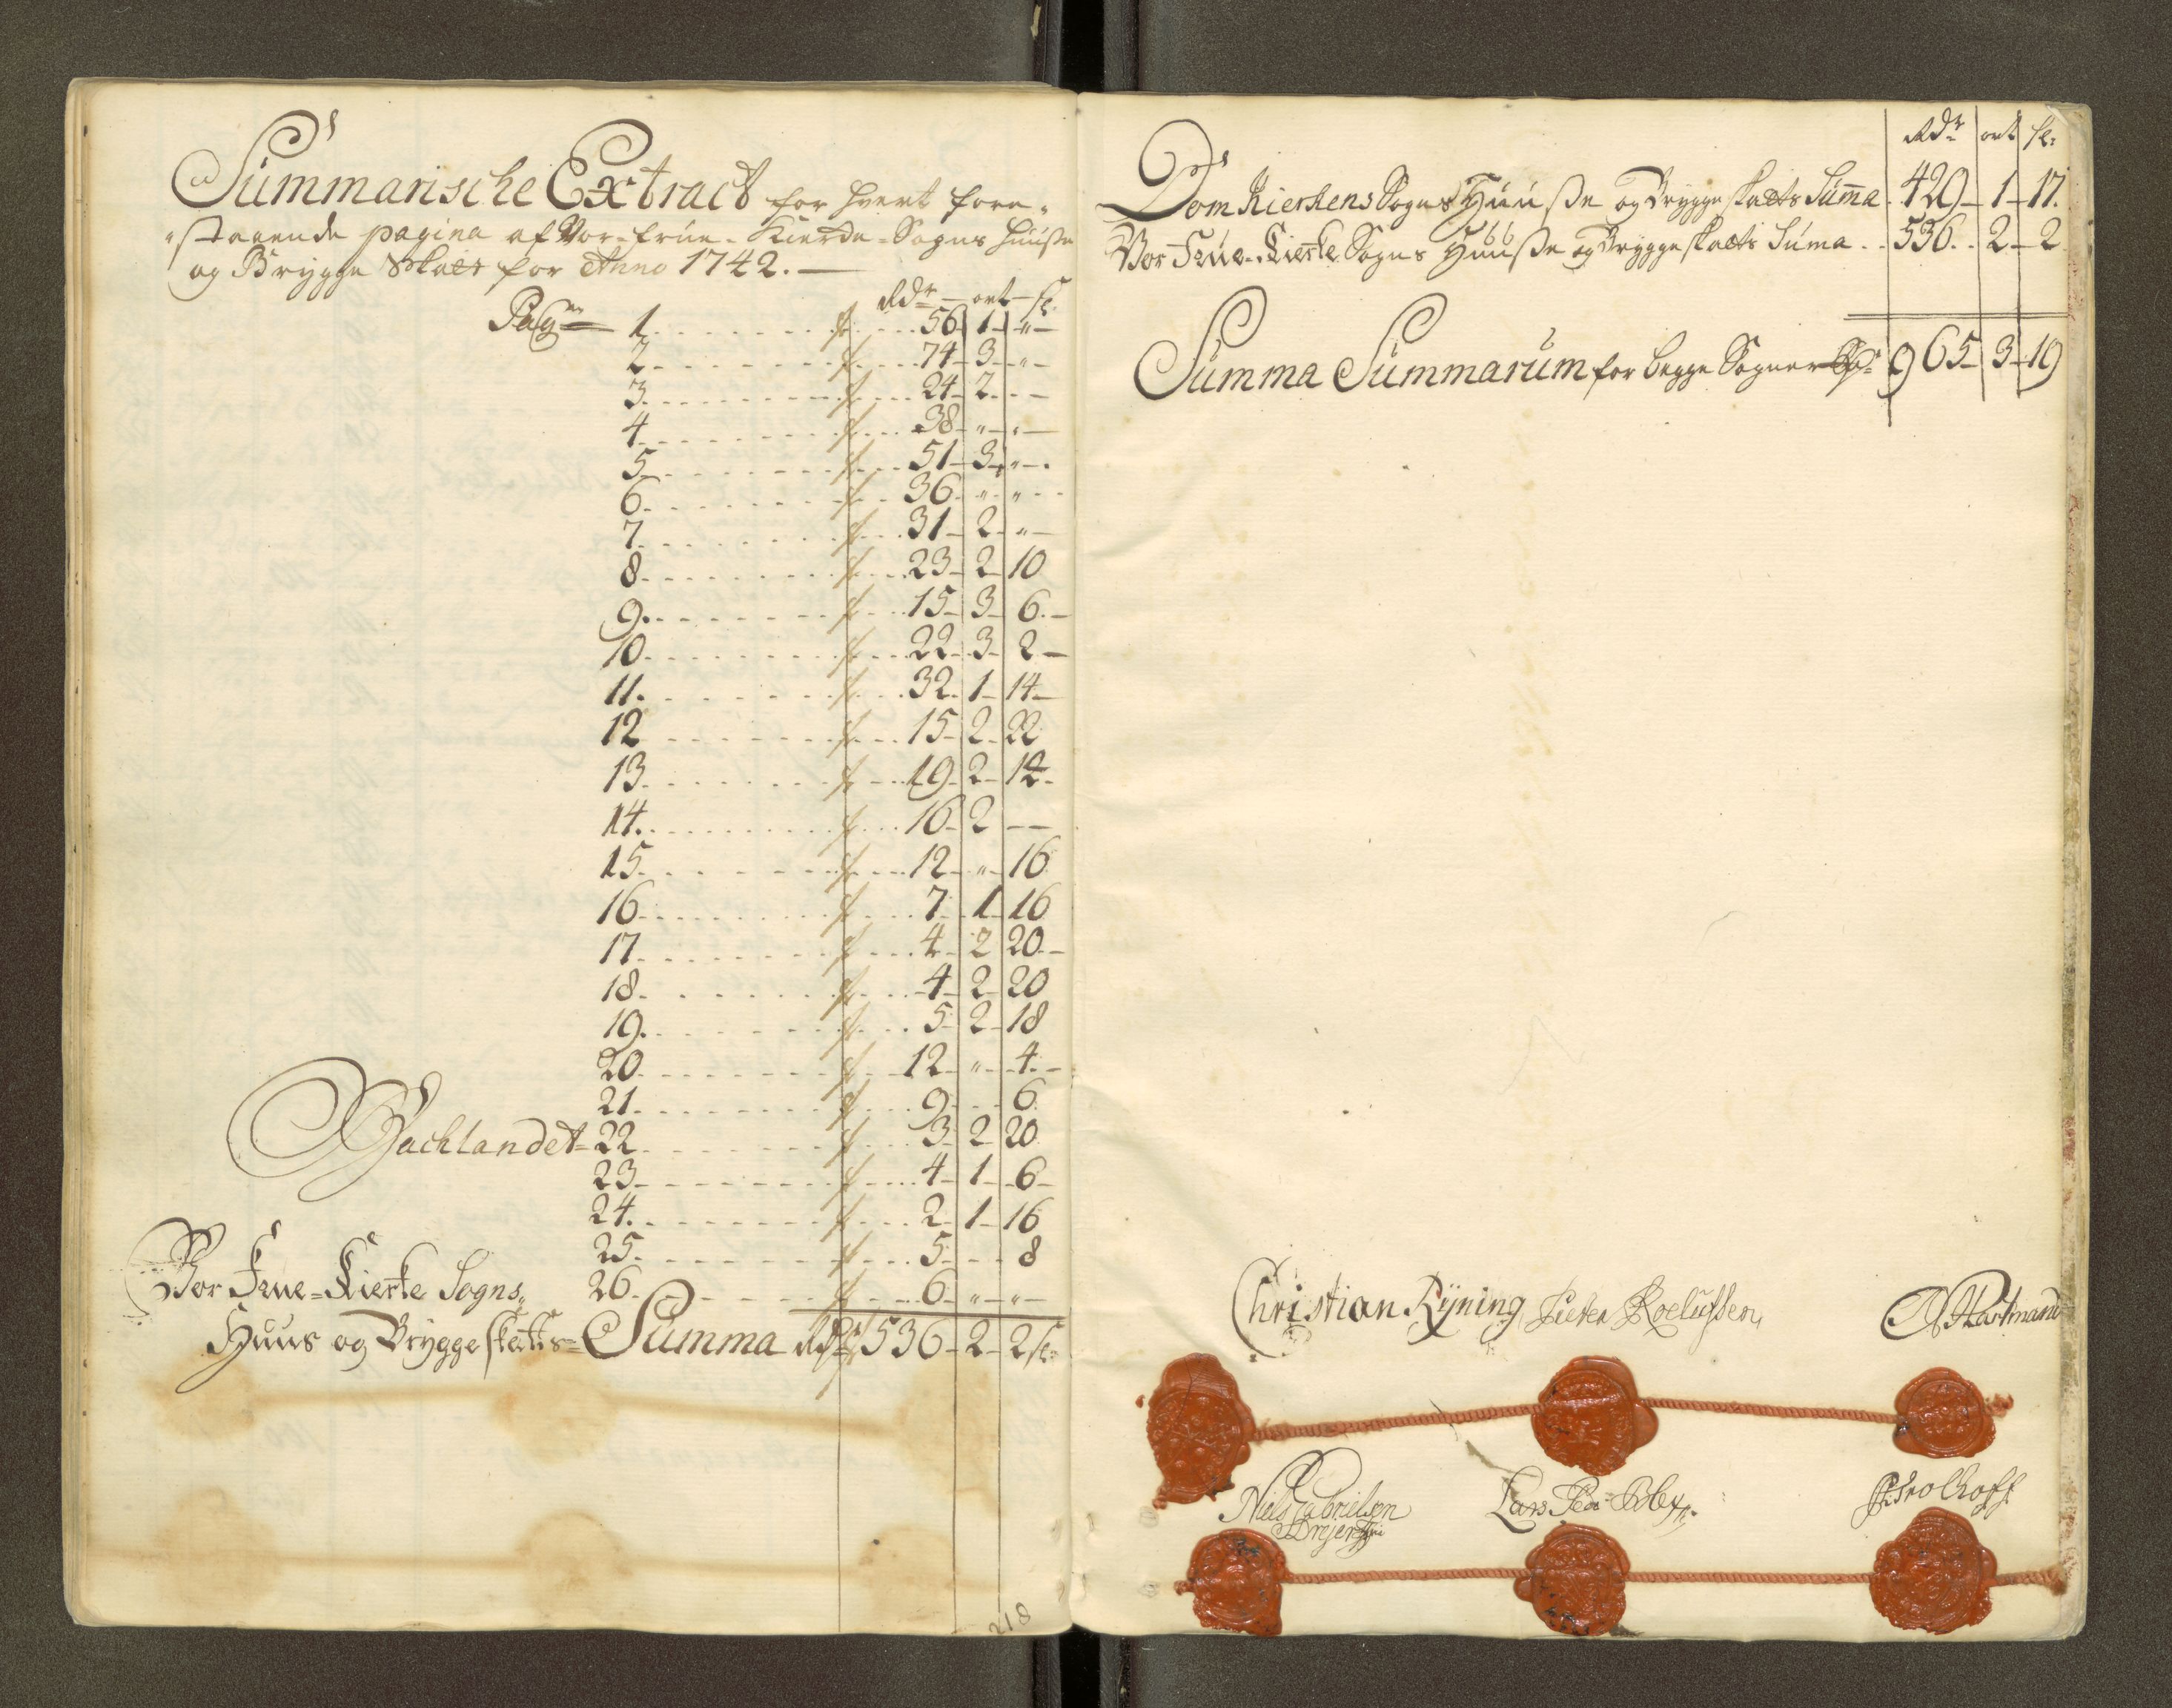 Summarische Extract for hvert fore-
staaende pagina af Vor-Früe-Kierke-Sogns Huuse
og Brygge Skatt for Anno 1742.
Rdr ort sk:
Pag 1 56 1 "
2 74 3 "
3 24 2 -
4 38 " "
5 51 3 "
6 36 " "
7 31 2 "
8 23 2 10
9 15 3 6
10 22 3 2
11 32 1 14
12 15 2 22
13 19 2 12
14 16 2 -
15 12 " 16
16 7 1 16
17 4 2 20
18 4 2 20
19 5 2 18
20 12 " 4
21 9 - 6
Bachlandet 22 3 2 20
23 4 1 6
24 2 1 16
25 5 - 8
Vor Frue-Kierke Sogns 26 6 " "
Huus og Brygge skatts Summa Rdr 536 2 2 sk:
218
Rdr ort sk:
Dom Kierkens Sogns Huuse og Brygge skatts Summa 429 1 17
Vor Frue-Kierke Sogns Huuse og Brygge skatts Suma 536 2 2
Summa Summarum for begge Sogner 965 3 19
Christian Rÿning Peter Roelufsen A Hartmand
Niels Gabrielsen Lars Ped: Bleg Ps: Trolhoff
Drejer